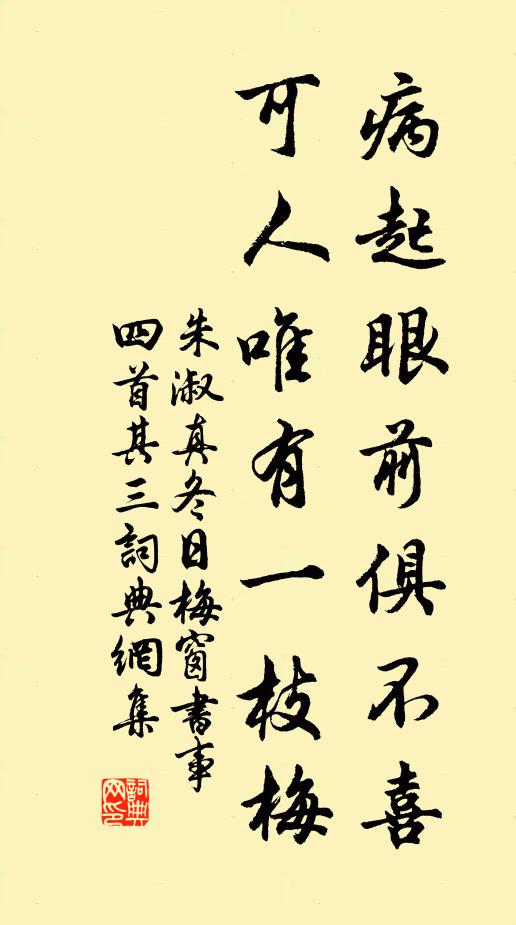 病起眼前俱不喜
可人唯有一枝梅
朱淑真冬日梅窗書事
四首其三詞典網集
詞典
网印